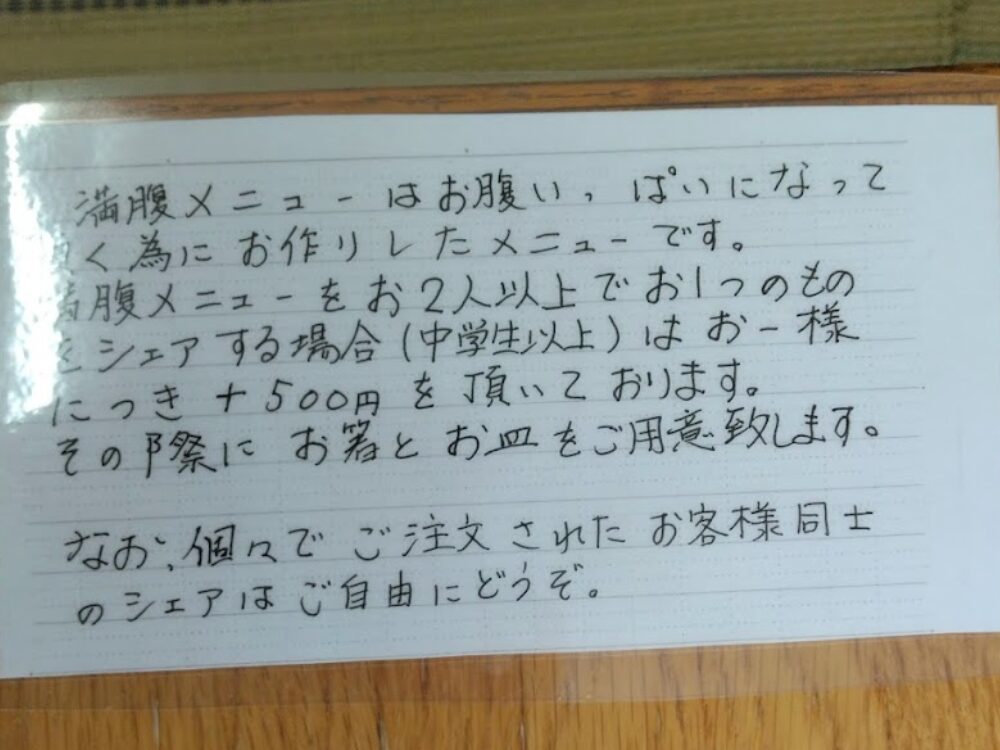 満腹メニューはお腹いっぱいになって
頂く為にお作りしたメニューです。
満腹メニューをお2人以上でお1つのもの
をシェアする場合(中学生以上)はお一様
につき+500円を頂いております。
その際にお箸とお皿をご用意致します。
なお、個々でご注文されたお客様同士
のシェアはご自由にどうぞ。